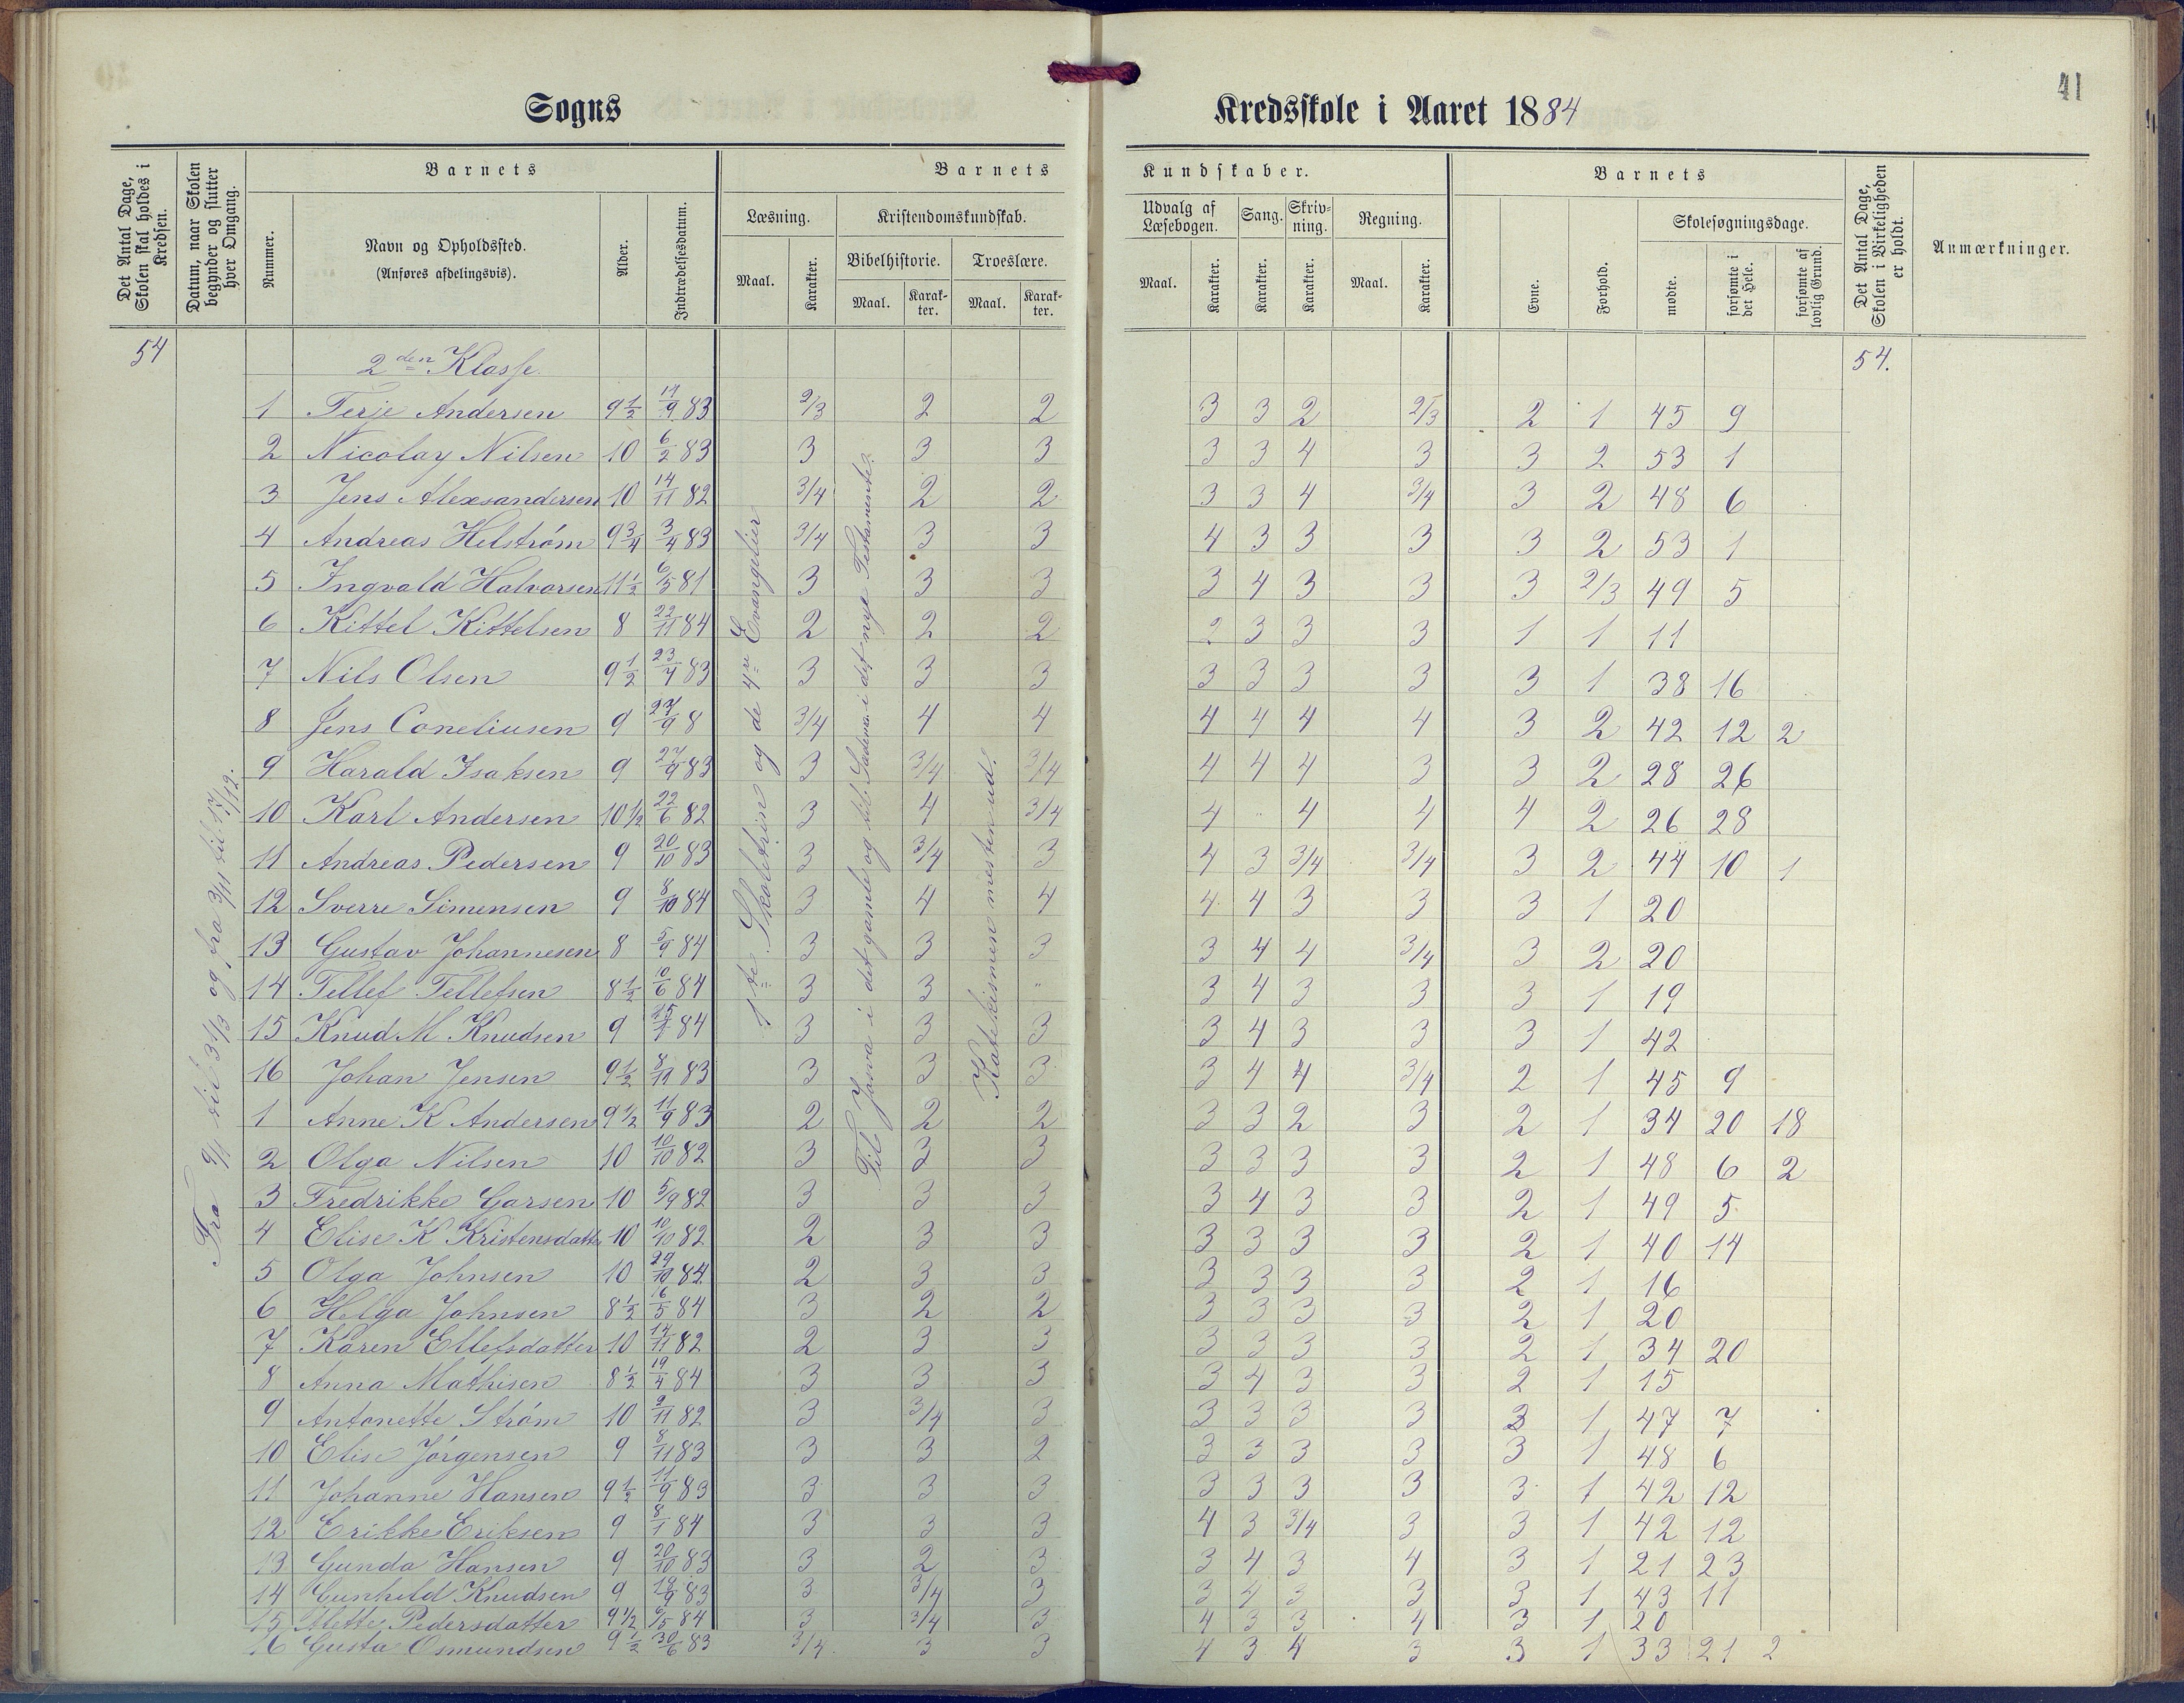 41
Sogns Kredsskole i Aaret 1884
Det Antal Dage, Skolen skal holdes i Kredsen.
Datum, naar Skolen begynder og slutter hver Omgang.
Barnets
Nummer.
Navn og Opholdssted.
(Anføres afdelingsvis).
Alder.
Indtrædelsesdatum.
Barnets Kundskaber.
Læsning.
Maal.
Karakter.
Kristendomskundskab.
Bibelhistorie.
Maal.
Karakter.
Troeslære.
Maal.
Karakter.
Udvalg af Læsebogen.
Maal.
Karakter.
Sang.
Karakter.
Skrivning.
Karakter.
Regning.
Maal.
Karakter.
Barnets
Evne.
Forhold.
Skolesøgningsdage.
mødte.
forsømte i det Hele.
forsømte af lovlig Grund.
Det Antal Dage, Skolen i Virkeligheden er holdt.
Anmærkninger.
54 2den Klasse 54.
Fra 9/1 til 31/3 og fra 3/11 til 17/12.
1te Skoletrin og de 4re Evangelier
Til Josva i det gamle og til i det nye Testamente.
Katekismen mesten ud.
1 Terje Andersen 9 1/2 11/9 83 2/3 2 2 3 3 2 2/3 2 1 45 9
2 Nicolay Nilsen 10 6/2 83 3 3 3 3 3 4 3 3 2 53 1
3 Jens Alexsandersen 10 14/11 82 3/4 2 2 3 3 4 3/4 3 2 48 6
4 Andreas Helstrøm 9 3/4 3/4 83 3/4 3 3 4 3 3 3 3 2 53 1
5 Ingvald Halvorsen 11 1/2 6/5 81 3 3 3 3 4 3 3 3 2/3 49 5
6 Kittel Kittelsen 8 22/11 84 2 2 2 2 3 3 3 1 1 11
7 Nils Olsen 9 1/2 23/4 83 3 3 3 3 3 3 3 3 1 38 16
8 Jens Coneliusen 9 27/9 8 3/4 4 4 4 4 4 4 3 2 42 12 2
9 Harald Isaksen 9 27/9 83 3 3/4 3/4 4 4 4 3 3 2 28 26
10 Karl Andersen 10 1/2 22/6 82 3 4 3/4 4 " 4 4 4 2 26 28
11 Andreas Pedersen 9 20/10 83 3 3/4 3 4 3 3/4 3/4 3 2 44 10 1
12 Sverre Simensen 9 8/10 84 3 4 4 4 4 3 3 3 1 20
13 Gustav Johannesen 8 5/9 84 3 3 3 3 4 4 3/4 3 2 20
14 Tellef Tellefsen 8 1/2 10/6 84 3 3 " 3 4 3 3 3 1 19
15 Knud M Knudsen 9 84 3 3 3 3 4 3 3 3 1 42
16 Johan Jensen 9 1/2 8/11 83 3 3 3 3 4 4 3/4 2 1 45 9
1 Anne K Andersen 9 1/2 11/9 83 2 2 2 3 3 2 3 2 1 34 20 18
2 Olga Nilsen 10 10/10 82 3 3 3 3 3 3 3 2 1 48 6 2
3 Fredrikke Garsen 10 5/9 82 3 3 3 3 4 3 3 2 1 49 5
4 Elise K Kristensdatter 10 10/10 82 2 3 3 3 3 3 3 2 1 40 14
5 Olga Johnsen 10 29/10 84 2 3 3 3 3 3 3 2 1 16
6 Helga Johnsen 8 1/2 16/5 84 3 2 2 3 3 3 3 2 1 20
7 Karen Ellefsdatter 10 14/11 82 2 3 3 3 3 3 3 2 1 34 20
8 Anna Mathisen 8 1/2 19/4 84 3 3 3 3 4 3 3 2 1 15
9 Antonette Strøm 10 9/11 82 3 3/4 3 3 3 3 3 3 1 47 7
10 Elise Jørgensen 9 8/11 83 3 3 2 3 3 3 3 3 1 48 6
11 Johanne Hansen 9 1/2 11/9 83 3 3 3 3 3 3 3 3 1 42 12
12 Erikke Eriksen 9 8/1 84 3 3 3 4 3 3/4 3 3 1 42 12
13 Gunda Hansen 9 20/10 83 3 2 3 3 4 3 4 3 1 21 23
14 Gunhild Knudsen 9 18/9 83 3 3/4 3 3 4 3 3 3 1 43 11
15 Mette Pedersdatter 9 1/2 6/5 84 3 3/4 3 4 3 3 4 3 1 20
16 Gusta Osmundsen 9 1/2 30/6 83 3/4 3 3 4 3 4 3 3 1 33 21 2